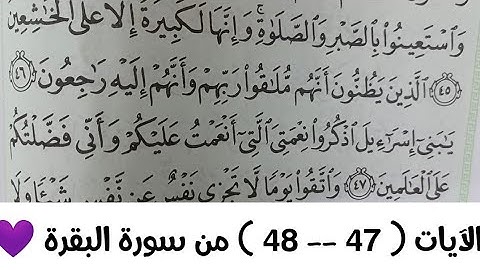 وَٱسْتَعِينُوا۟ بِٱلصَّبْرِ وَٱلصَّلَوٰةِ ۚ وَإِنَّهَا لَكَبِيرَةٌ إِلَّا عَلَى ٱلْخَٰشِعِينَ
٤٥ ٱلَّذِينَ يَظُنُّونَ أَنَّهُم مُّلَٰقُوا۟ رَبِّهِمْ وَأَنَّهُمْ إِلَيْهِ رَٰجِعُونَ ٤٦
يَٰبَنِىٓ إِسْرَٰٓءِيلَ ٱذْكُرُوا۟ نِعْمَتِىَ ٱلَّتِىٓ أَنْعَمْتُ عَلَيْكُمْ وَأَنِّى فَضَّلْتُكُمْ
عَلَى ٱلْعَٰلَمِينَ ٤٧ وَٱتَّقُوا۟ يَوْمًا لَّا تَجْزِى نَفْسٌ عَن نَّفْسٍ شَيْـًٔا وَلَا
الآيات ( 47 -- 48 ) من سورة البقرة 💜